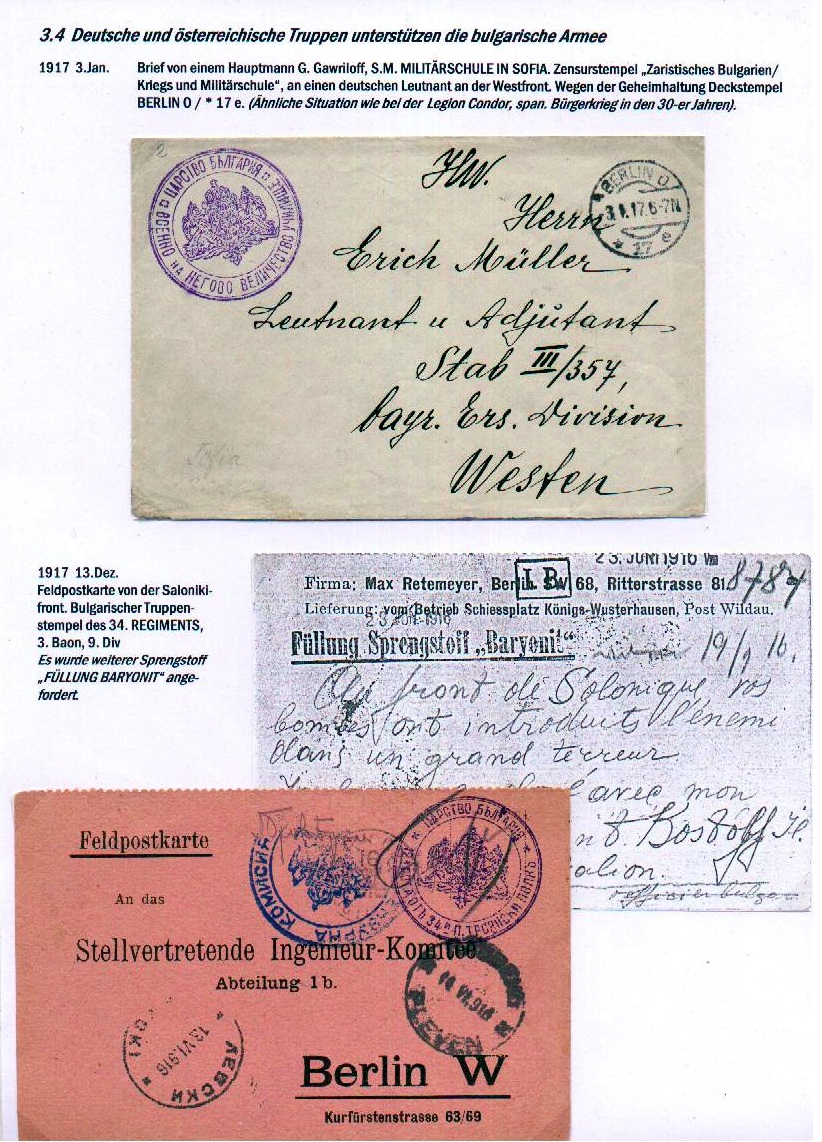 3.4 Deutsche und österreichische Truppen unterstützen die bulgarische Armee
1917 3.Jan. Brief von einem Hauptmann G. Gawriloff, S.M. MILITÄRSCHULE IN SOFIA. Zensurstempel „Zaristisches Bulgarien/
Kriegs und Militärschule“, an einen deutschen Leutnant an der Westfront. Wegen der Geheimhaltung Deckstempel
BERLIN O / * 17 e. (Ähnliche Situation wie bei der Legion Condor, span. Bürgerkrieg in den 30-er Jahren).
2
ЦАРСТВО БЪЛГАРИЯ
ВОЕННО НА НЕГОВО ВЕЛИЧЕСТВО УЧИЛИЩЕ
BERLIN O.
3.1.17.6-7N
* 17 e
Herrn
Erich Müller
Leutnant u Adjutant
Stab III/357,
bayr. Ers. Division
Westen
Sofia
1917 13.Dez.
Feldpostkarte von der Saloniki-
front. Bulgarischer Truppen-
stempel des 34. REGIMENTS,
3. Baon, 9. Div
Es wurde weiterer Sprengstoff
„FÜLLUNG BARYONIT“ ange-
fordert.
23. JUNI 1916 VIII
I B
Firma: Max Retemeyer, Berlin SW 68, Ritterstrasse 81
8787
Lieferung: vom Betrieb Schiessplatz Königs-Wusterhausen, Post Wildau.
Füllung Sprengstoff „Baryonit“
19/ 16.
Au front de Solonique, vos
bombes ont introduits l'énemi
dans un grand terreur
l'avec mon
Bostoff
alion.
Feldpostkarte
КОМИСИЯ
ЦАРСТВО БЪЛГАРИЯ
34 П. ТРОЯНСКИ ПОЛКЪ
An das
Stellvertretende Ingenieur-Komitee
Abteilung 1 b.
PLEVEN
ЛЕВСКИ
13 VI.916
Berlin W
Kurfürstenstrasse 63/69